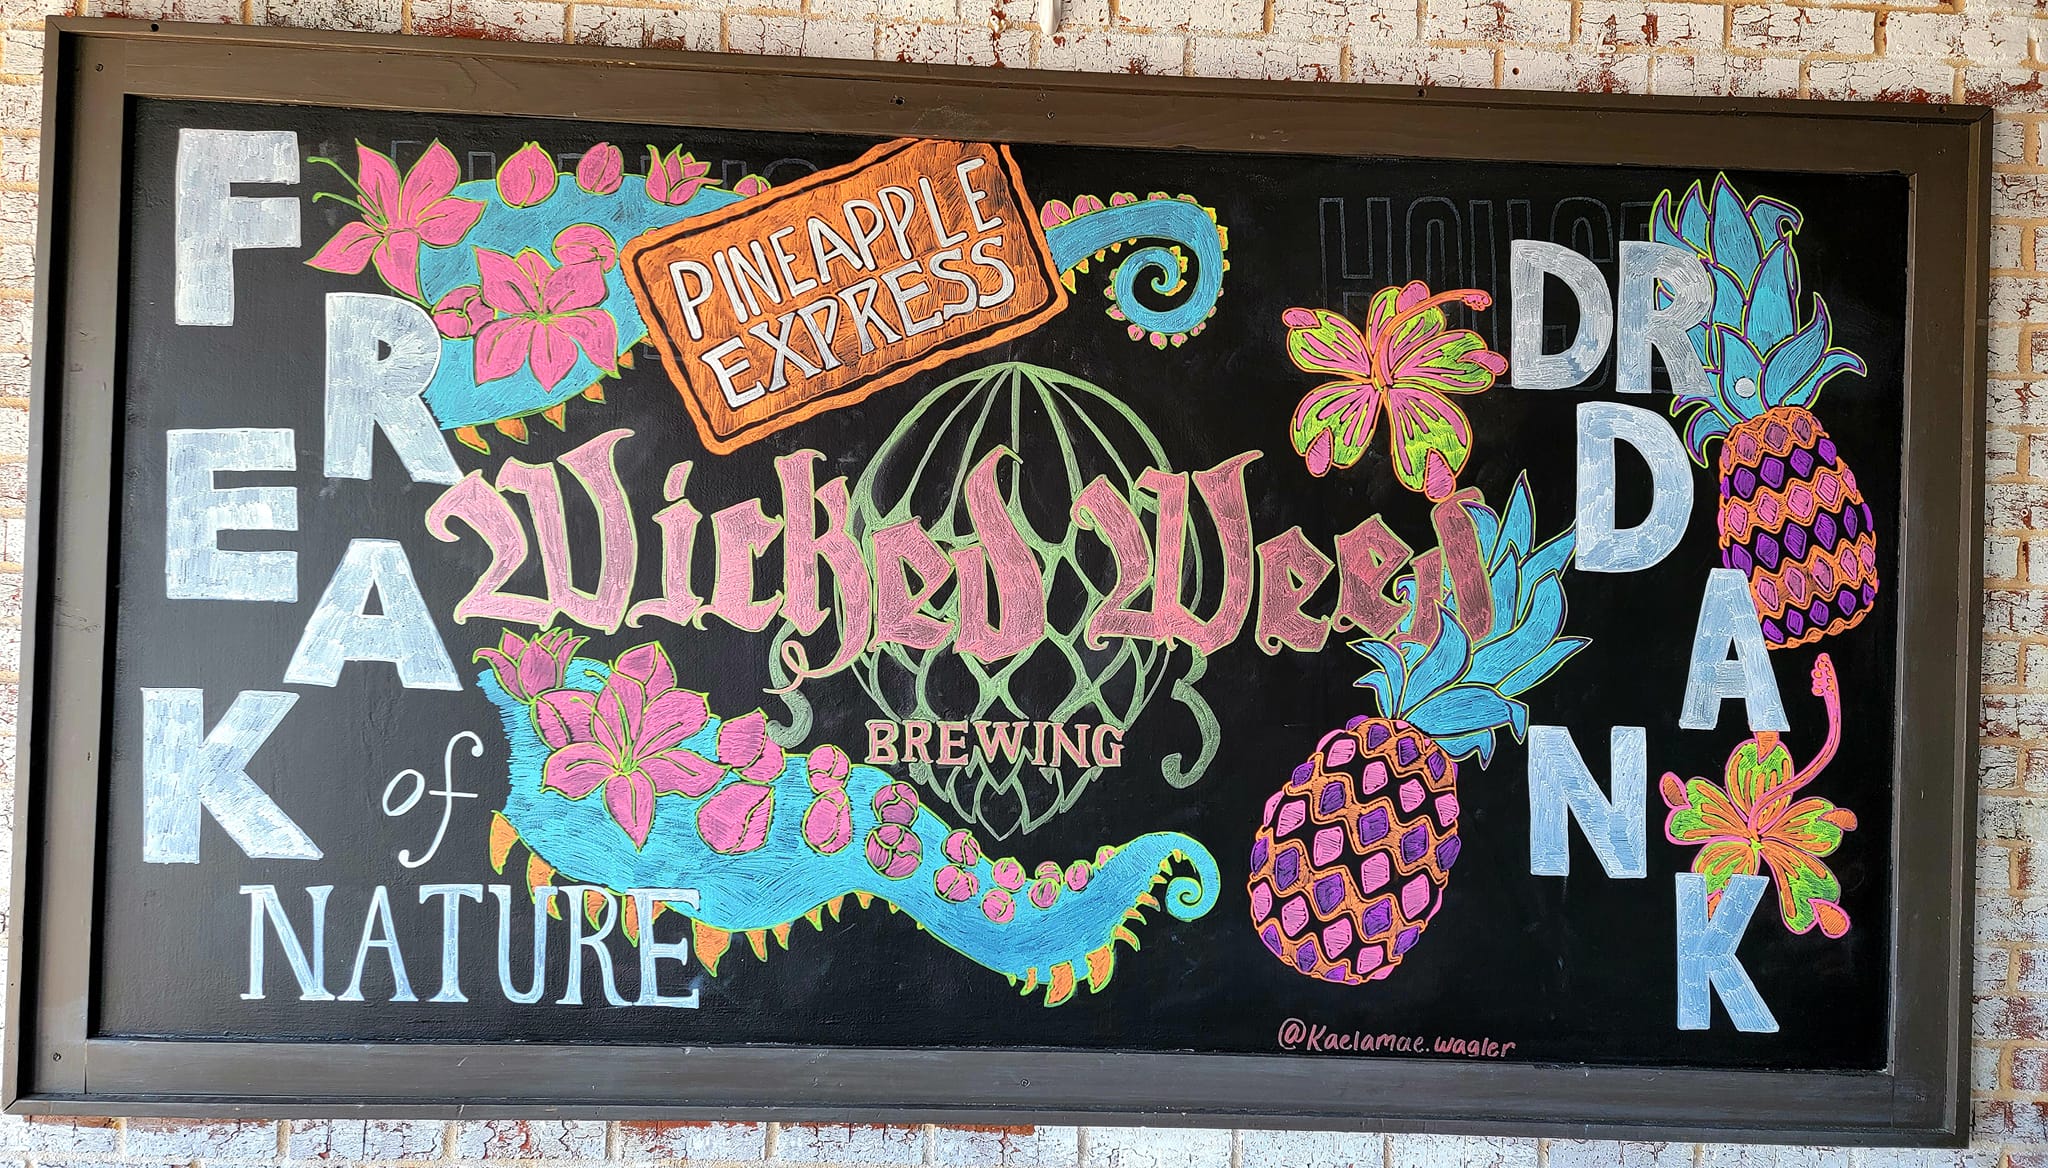 FREAK
of
NATURE
PINEAPPLE
EXPRESS
Wicked Weed
BREWING
DR
DANK
@Kaelamae.wagler